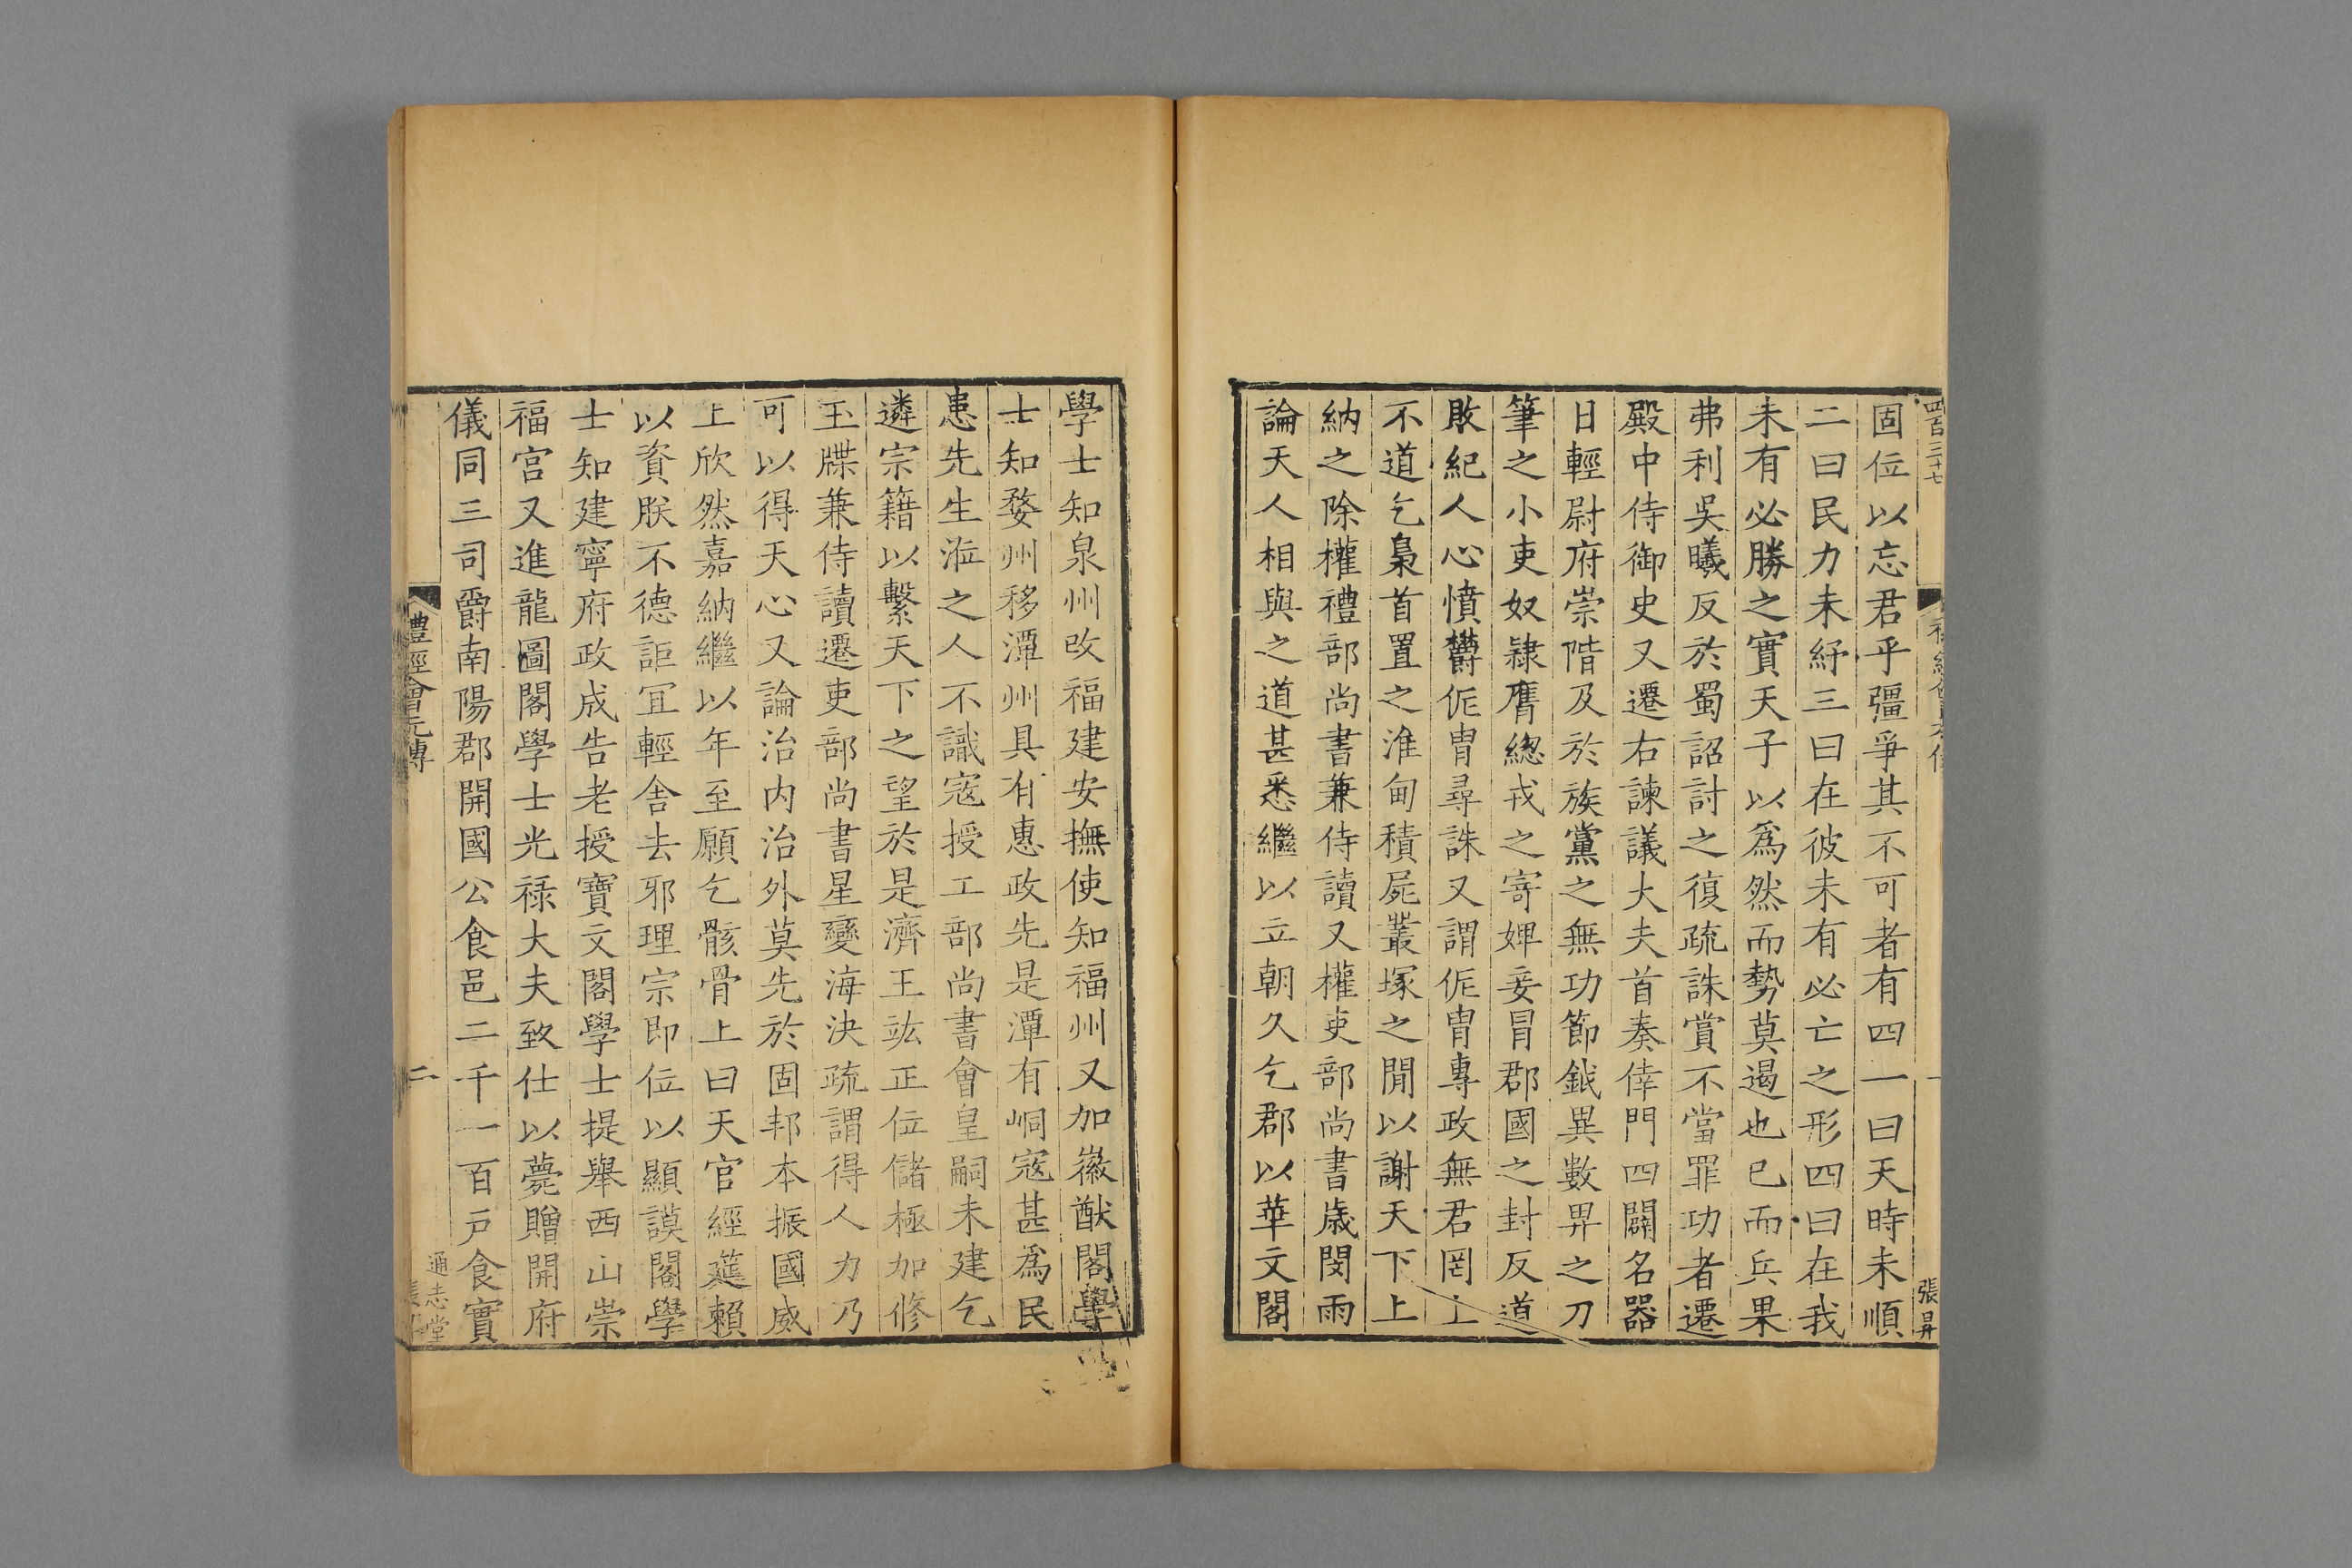 四百三十七
張昇
固位以忘君乎彊爭其不可者有四一曰天時未順
二曰民力未紓三曰在彼未有必亡之形四曰在我
未有必勝之實天子以爲然而勢莫遏也已而兵果
弗利吳曦反於蜀詔討之復疏誅賞不當罪功者遷
殿中侍御史又遷右諫議大夫首奏倖門四闢名器
日輕尉府崇階及於族黨之無功節鉞異數畀之刀
筆之小吏奴隸膺緦戎之寄婢妾冒郡國之封反道
敗紀人心憤欝侂胄尋誅又謂侂胄專政無君罔上
不道乞梟首置之淮甸積屍叢塚之閒以謝天下上
納之除權禮部尚書兼侍讀又權吏部尚書歲閔雨
論天人相與之道甚悉繼以立朝久乞郡以華文閣
學士知泉州改福建安撫使知福州又加徽猷閣學
士知婺州移潭州具有惠政先是潭有峒寇甚爲民
患先生涖之人不識寇授工部尚書會皇嗣未建乞
遴宗籍以繫天下之望於是濟王竑正位儲極加修
玉牒兼侍讀遷吏部尚書星變海決疏謂得人力乃
可以得天心又論治内治外莫先於固邦本振國威
上欣然嘉納繼以年至願乞骸骨上曰天官經筵賴
以資朕不德詎宜輕舍去邪理宗即位以顯謨閣學
士知建寧府政成告老授寶文閣學士提舉西山崇
福宮又進龍圖閣學士光祿大夫致仕以薨贈開府
儀同三司爵南陽郡開國公食邑二千一百戸食實
禮經會元傳
二
通志堂